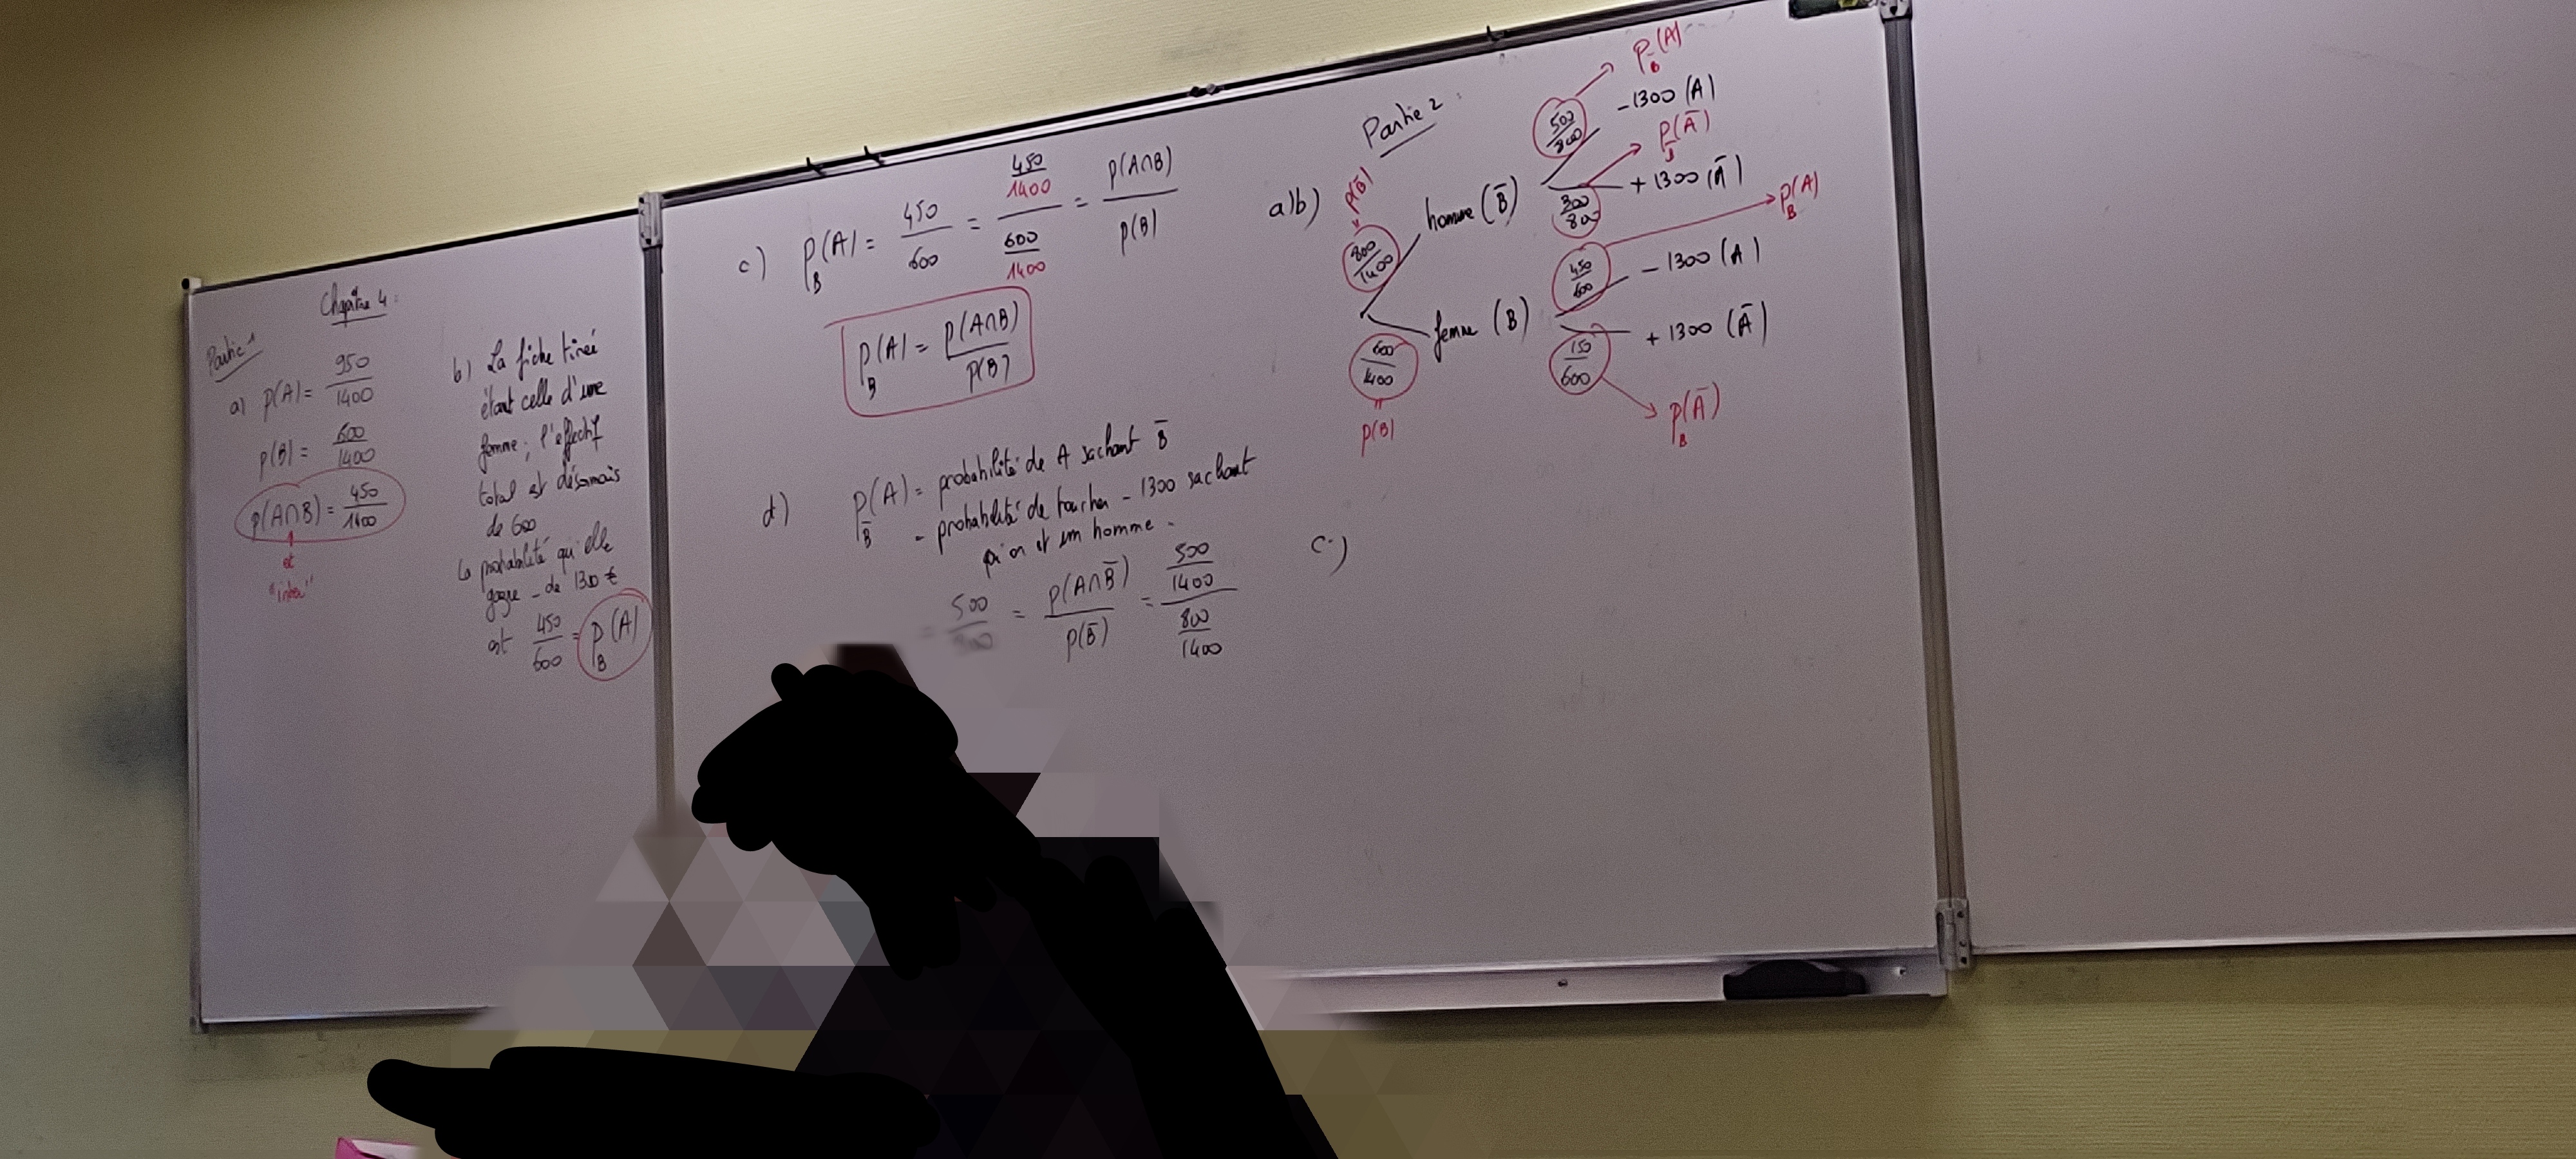 Chapitre 4 :
Partie 1
a) p(A) = 950/1400
p(B) = 600/1400
p(A∩B) = 450/1400
et
"inter"
b) La fiche tirée
étant celle d'une
femme ; l'effectif
total est désormais
de 600
La probabilité qu'elle
gagne - de 1300 €
est 450/600 = p_B(A)
c) p_B(A) = 450/600 = (450/1400)/(600/1400) = p(A∩B)/p(B)
p_B(A) = p(A∩B)/p(B)
d) p_B̄(A) = probabilité de A sachant B̄
= probabilité de toucher - 1300 sachant
qu'on est un homme.
= 500/800 = p(A∩B̄)/p(B̄) = (500/1400)/(800/1400)
Partie 2 :
a)b)
p(B̄)
800/1400
homme (B̄)
500/800
p_B̄(A)
- 1300 (A)
p_B̄(Ā)
300/800
+ 1300 (Ā)
600/1400
p(B)
femme (B)
450/600
p_B(A)
- 1300 (A)
150/600
+ 1300 (Ā)
p_B(Ā)
c)